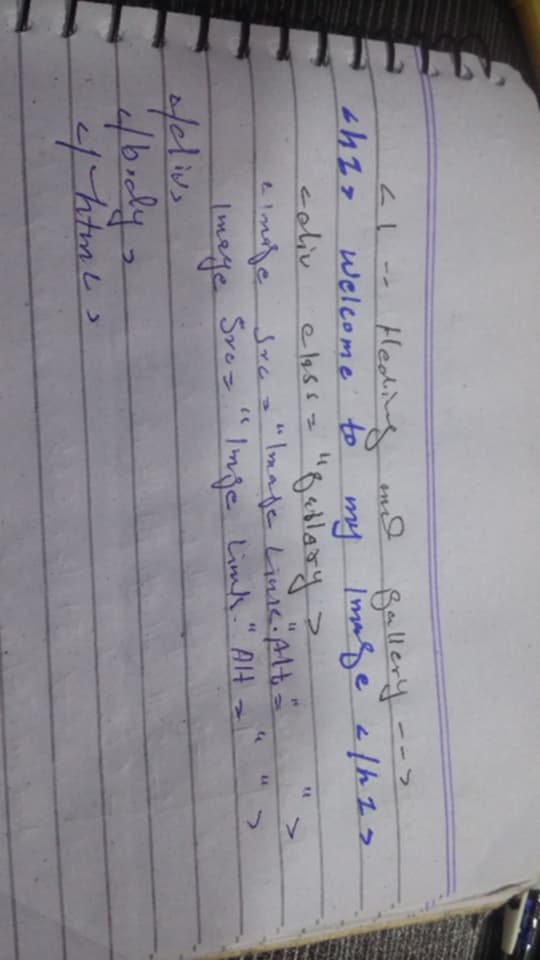 <!-- Heading and gallery -->
<h2> Welcome to my Image </h2>
<div class= "gallary >
<image Src = "Image Link." Alt= " " >
Image Src= "Imge Link." Alt = " " >
</div>
</body>
</html>